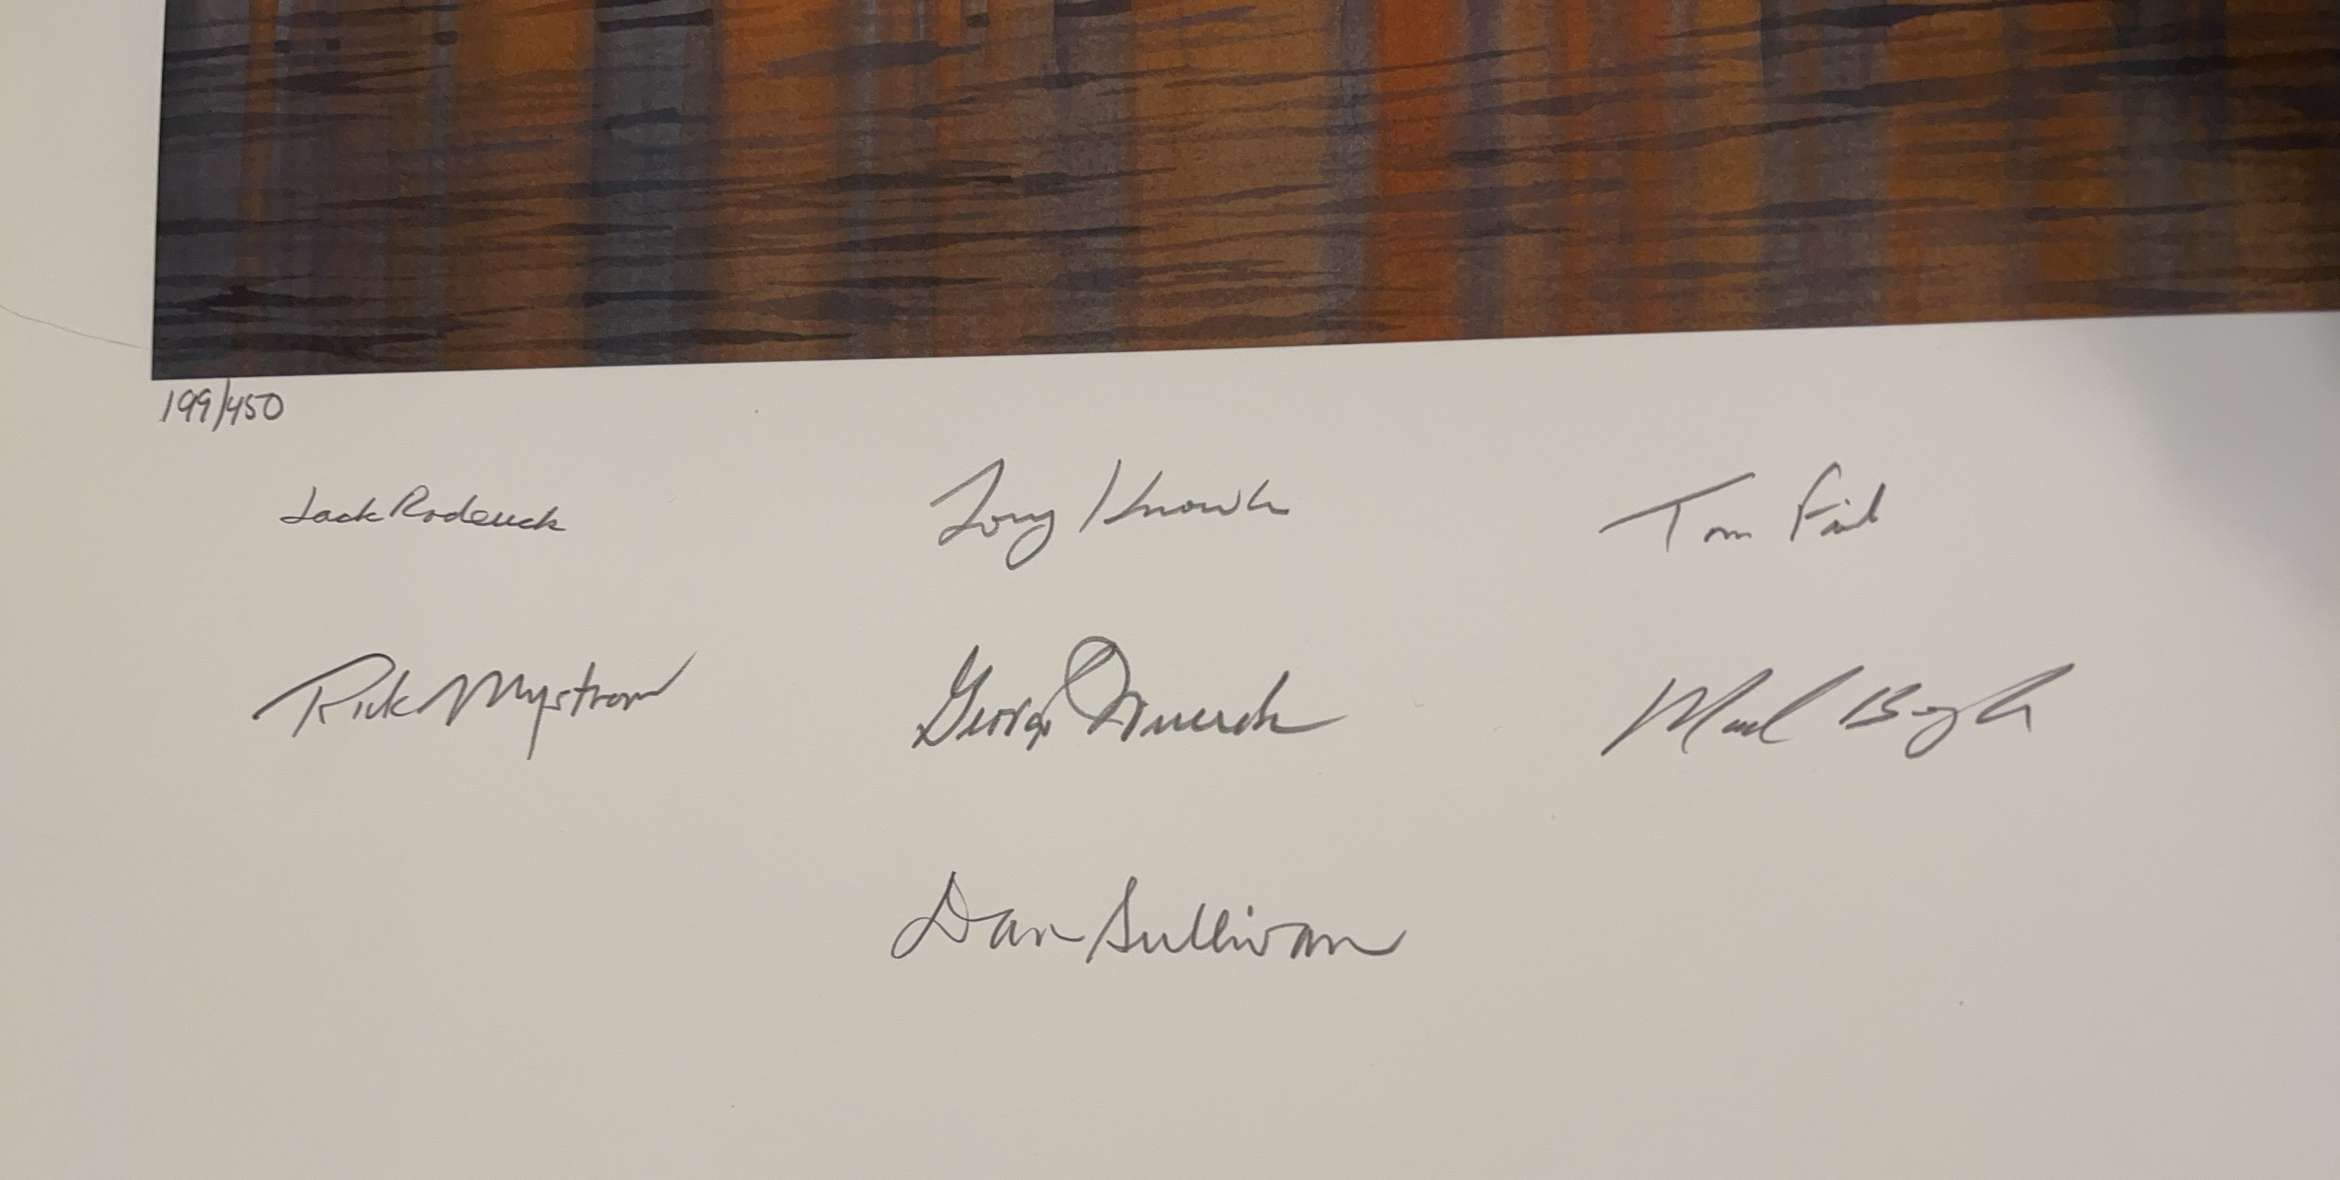 199/450
Jack Roderick Tony Knowles Tom Fink
Rick Mystrom George Wuerch Mark Begich
Dan Sullivan